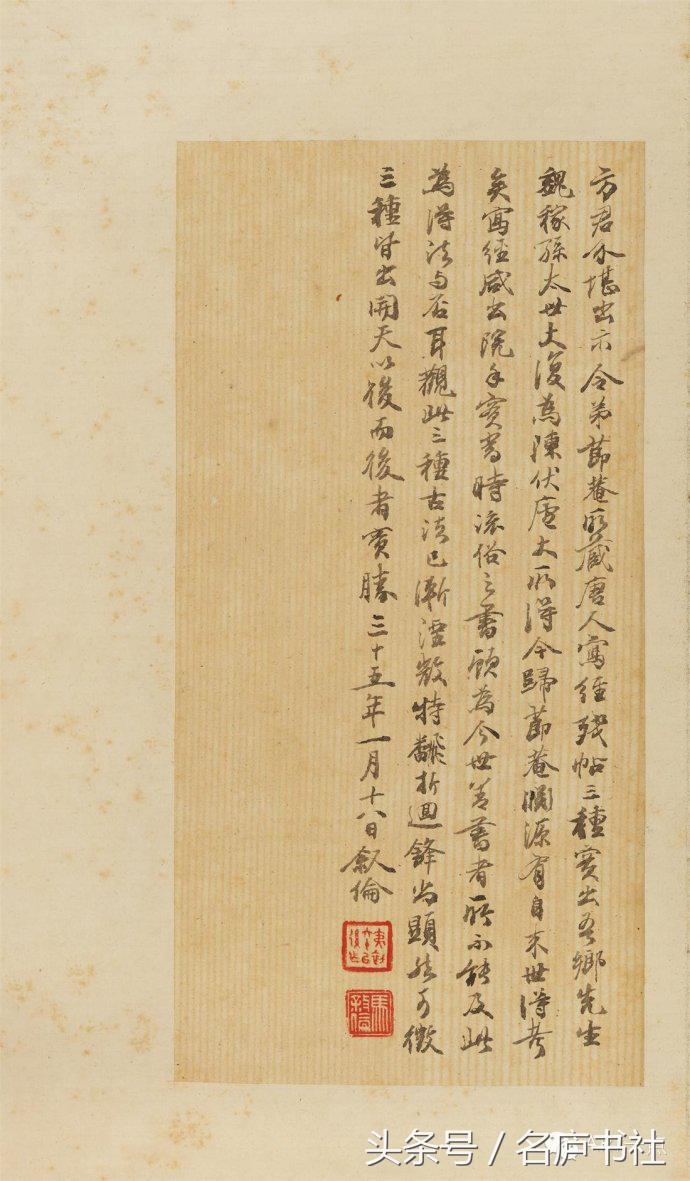 方君介堪出示令弟節菴所藏唐人寫經殘帖三種實出吾鄉先生
魏稼孫太世丈復為陳伏廬丈所得今歸節菴淵源有自來世得考
矣寫經咸出院手實當時流俗之書顧為今世善書者所不能及此
為得法與否耳觀此三種古法已漸湮散特翻折迴鋒尚顯然可徵
三種皆出開天以後而後者實勝三十五年一月十八日敘倫
馬敘倫
头条号 / 名庐书社